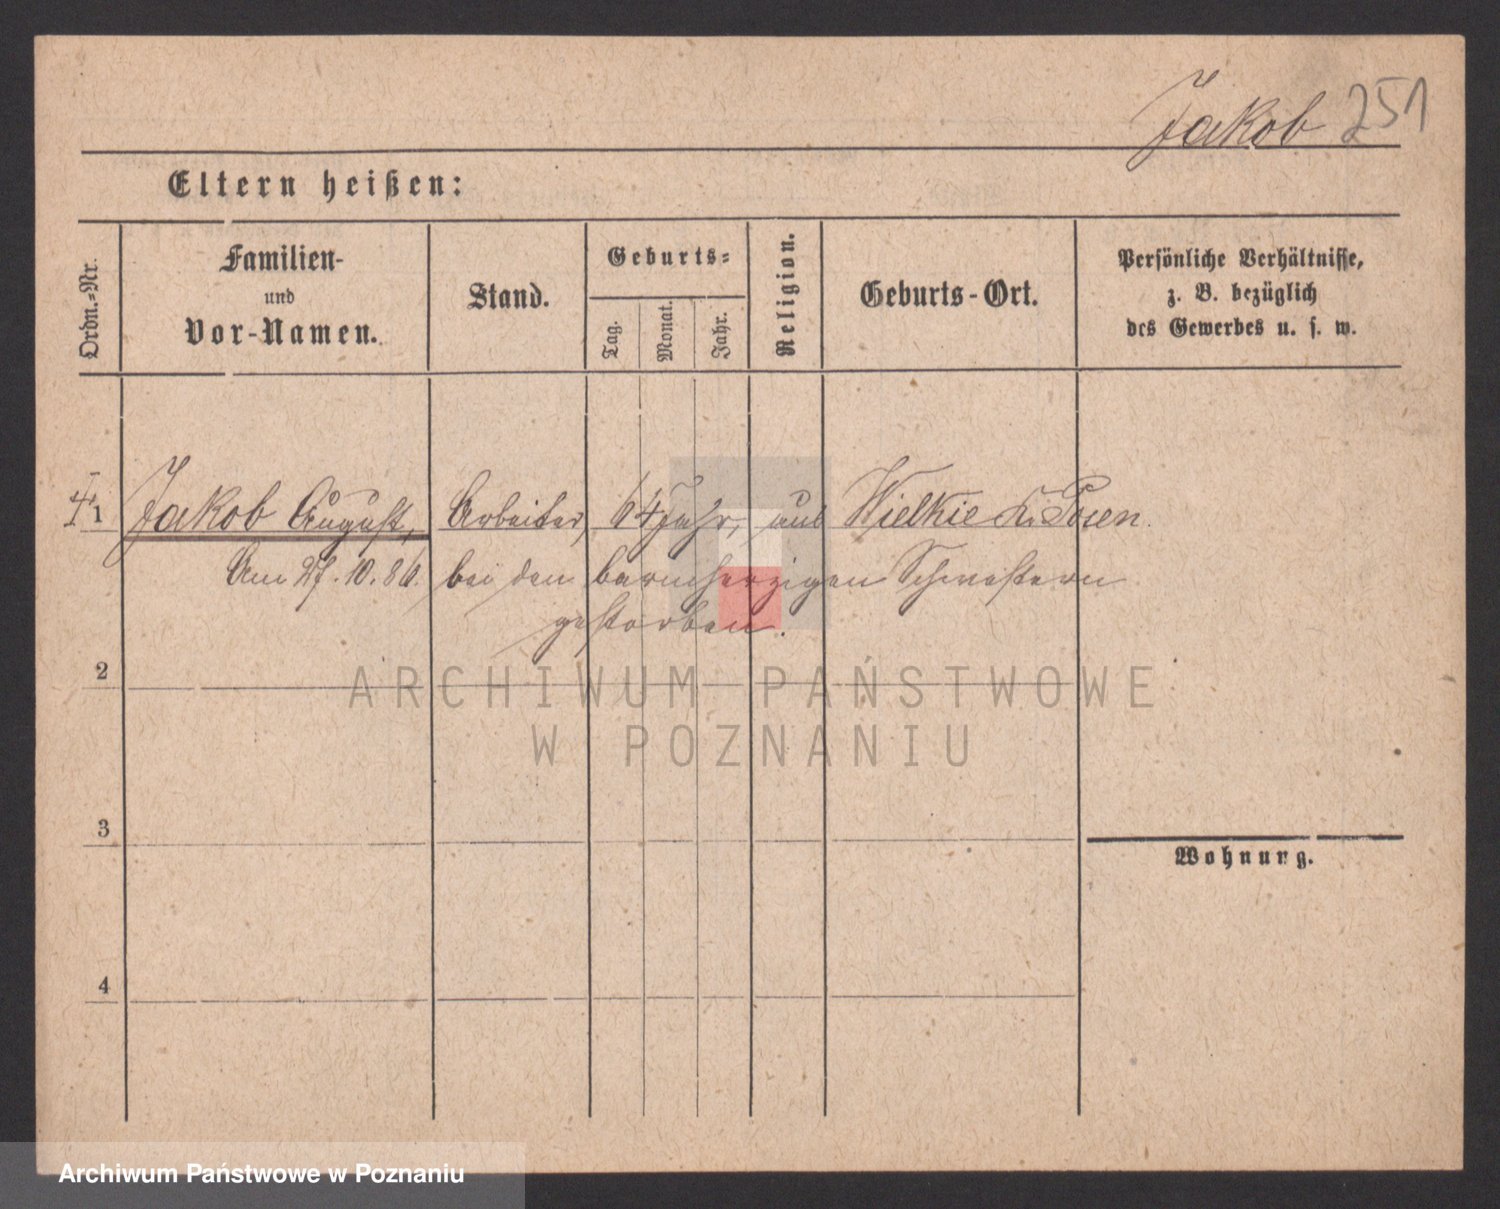 Jakob 251
Eltern heißen:
Ordn.=Nr.
Familien-
und
Vor-Namen.
Stand.
Geburts=
Tag.
Monat.
Jahr.
Religion.
Geburts-Ort.
Persönliche Verhältnisse,
z. B. bezüglich
des Gewerbes u. s. w.
1 Jakob August, Arbeiter, 64 Jahr, aus Wielkie Kr. Posen.
Am 27.10.86. bei den barmherzigen Schwestern
gestorben.
2
ARCHIWUM PAŃSTWOWE
W POZNANIU
3
Wohnung.
4
Archiwum Państwowe w Poznaniu